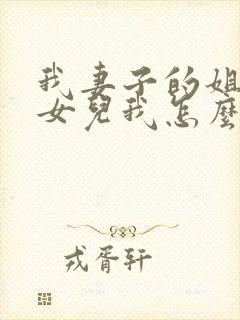 我妻子的姐
女兒我怎麼
戎胥轩